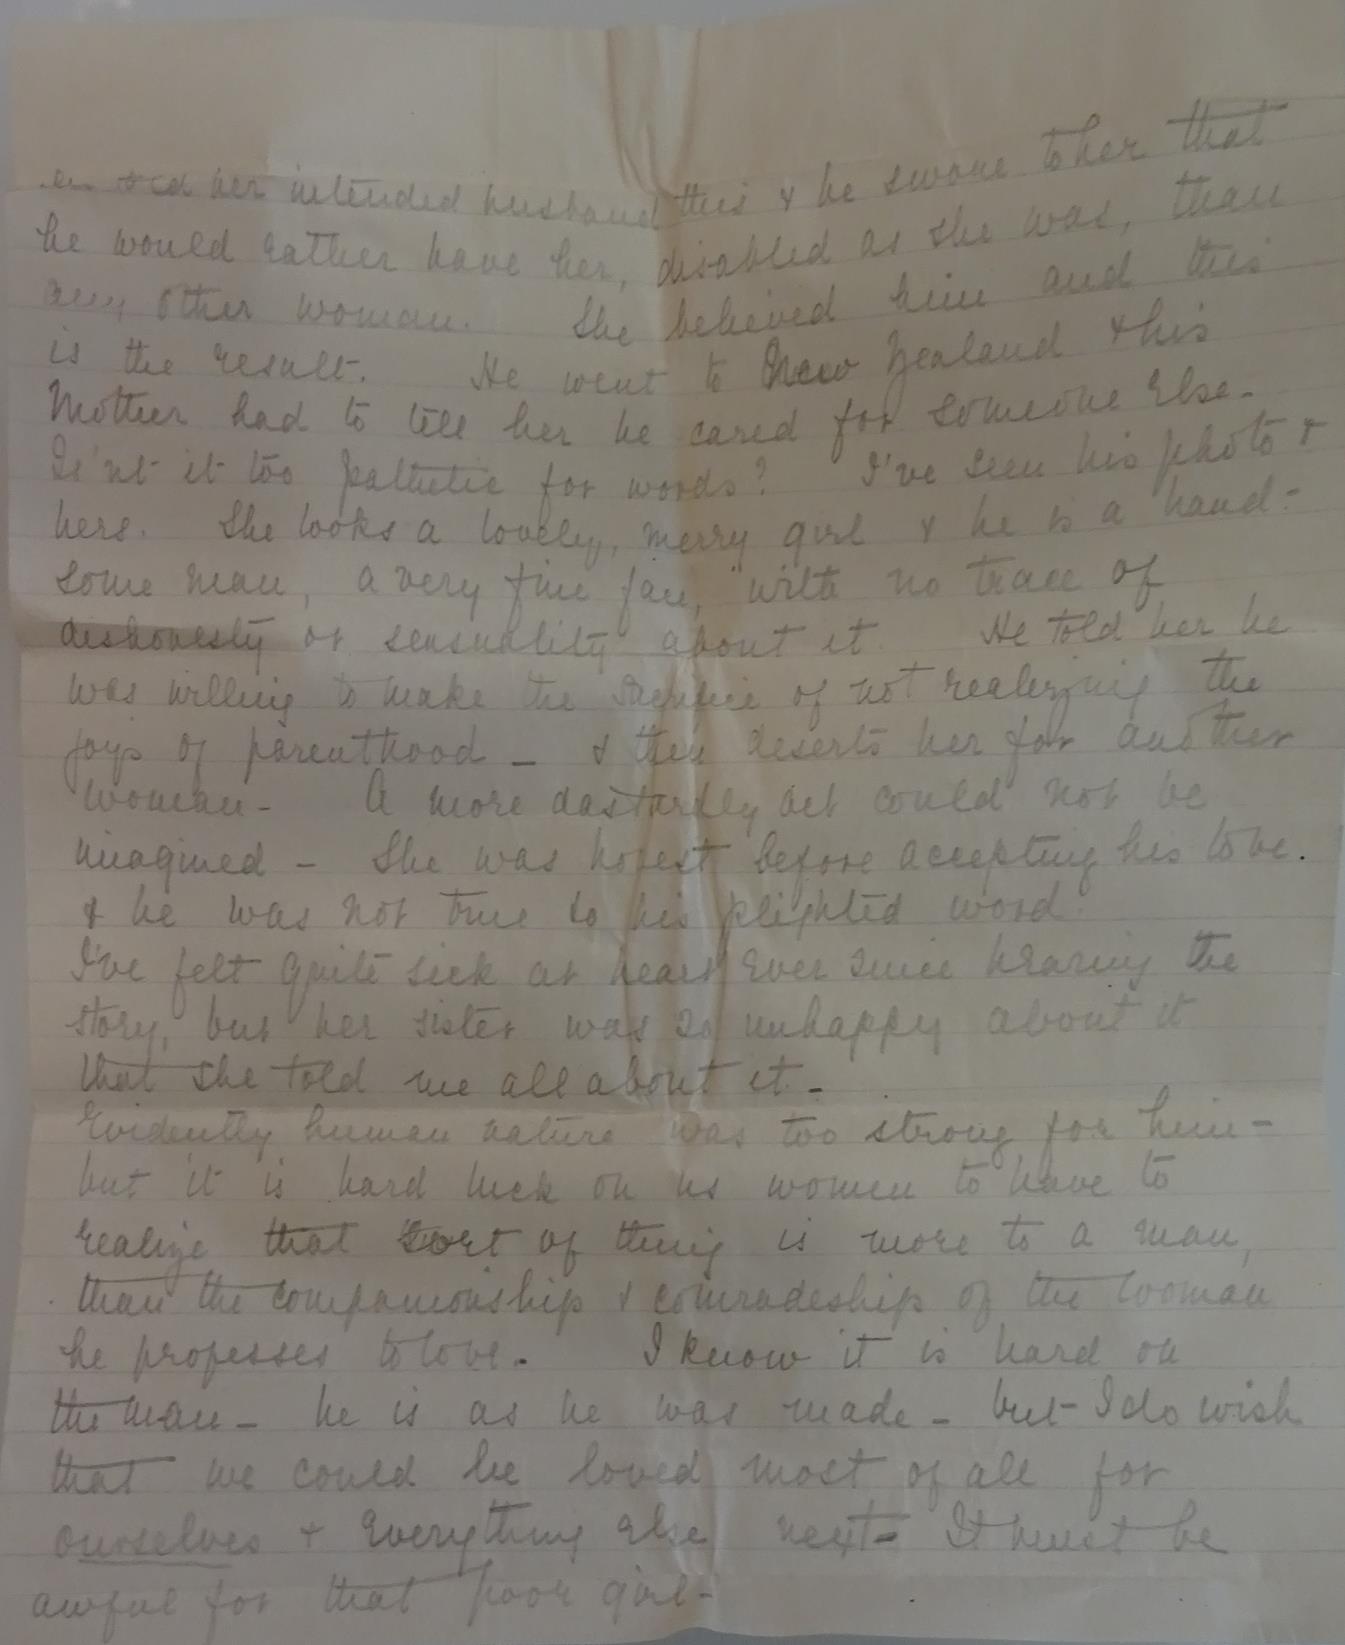 told her intended husband this & he swore to her that
he would rather have her, disabled as she was, than
any other woman. She believed him and this
is the result. He went to New Zealand & his
Mother had to tell her he cared for someone else-
Is'nt it too pathetic for words? I've seen his photo &
hers. She looks a lovely, merry girl & he is a hand-
some man, a very fine face, with no trace of
dishonesty or sensuality about it. He told her he
was willing to make the sacrifice of not realizing the
joys of parenthood - & then deserts her for another
woman- A more dastardly act could not be
imagined - She was honest before accepting his love.
& he was not true to his plighted word.
I've felt quite sick at heart ever since hearing the
story, but her sister was so unhappy about it
that she told me all about it-
Evidently human nature was too strong for him-
but it is hard luck on us women to have to
realize that sort of thing is more to a man,
than the companionship & comradeship of the woman
he professes to love. I know it is hard on
the man- he is as he was made- but- I do wish
that we could be loved most of all for
ourselves & everything else next- It must be
awful for that poor girl-